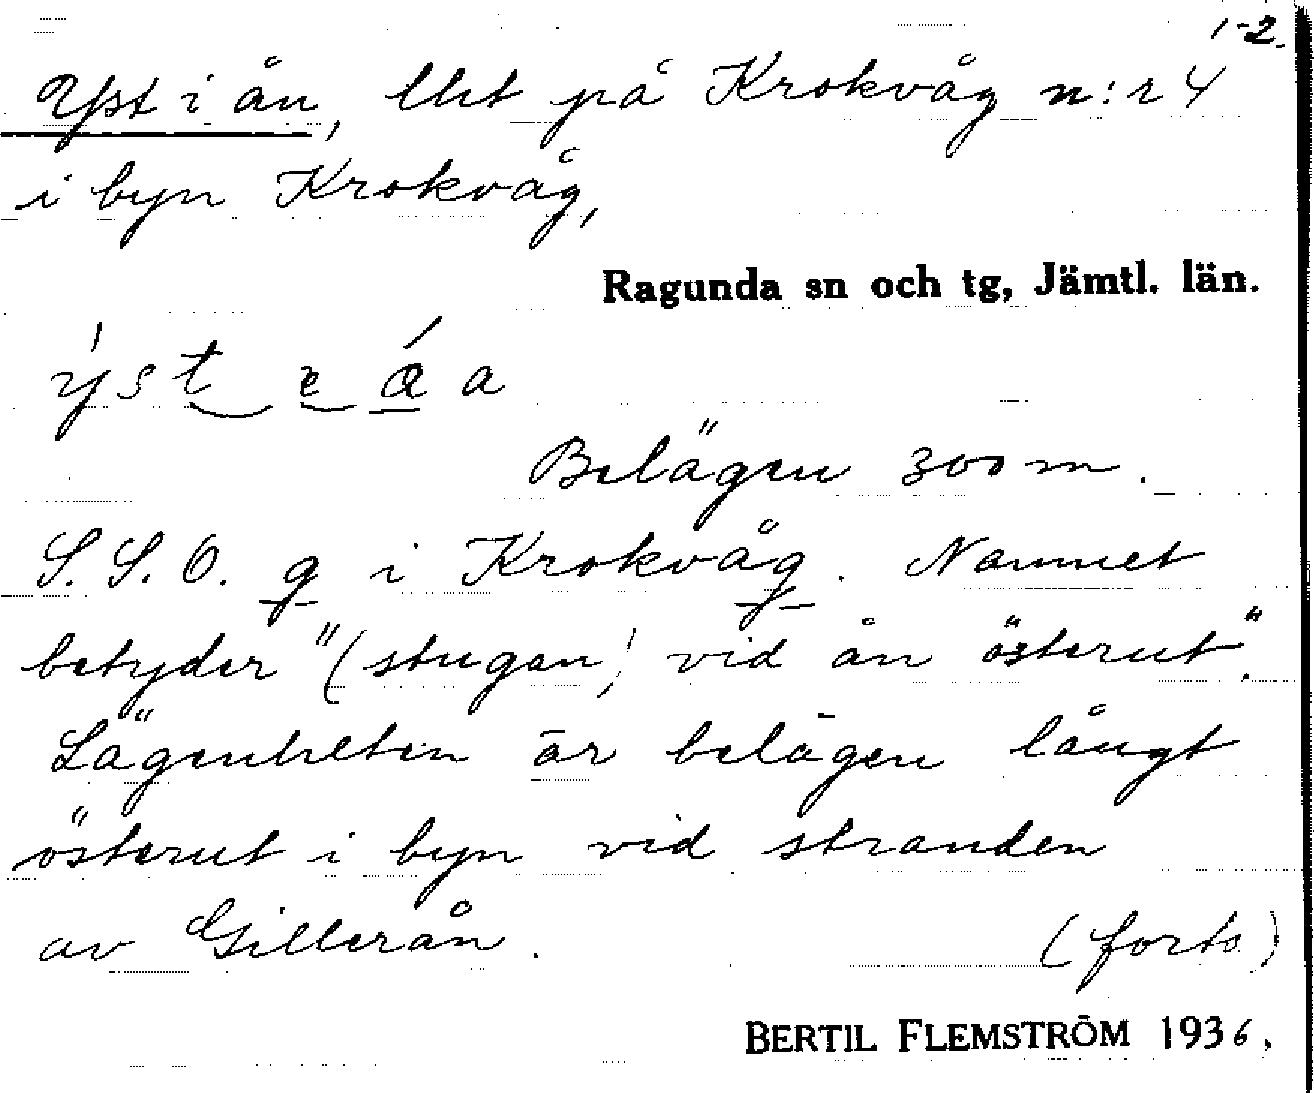 1-2.
Yst i ån, lht på Krokvåg n:r 4
i byn Krokvåg,
Ragunda sn och tg, Jämtl. län.
ýst e áa
Belägen 300 m.
S.S.O. g i Krokvåg. Namnet
betyder "(stugan) vid ån österut".
Lägenheten är belägen långt
österut i byn vid stranden
av Gillerån. (forts.)
BERTIL FLEMSTRÖM 1936.